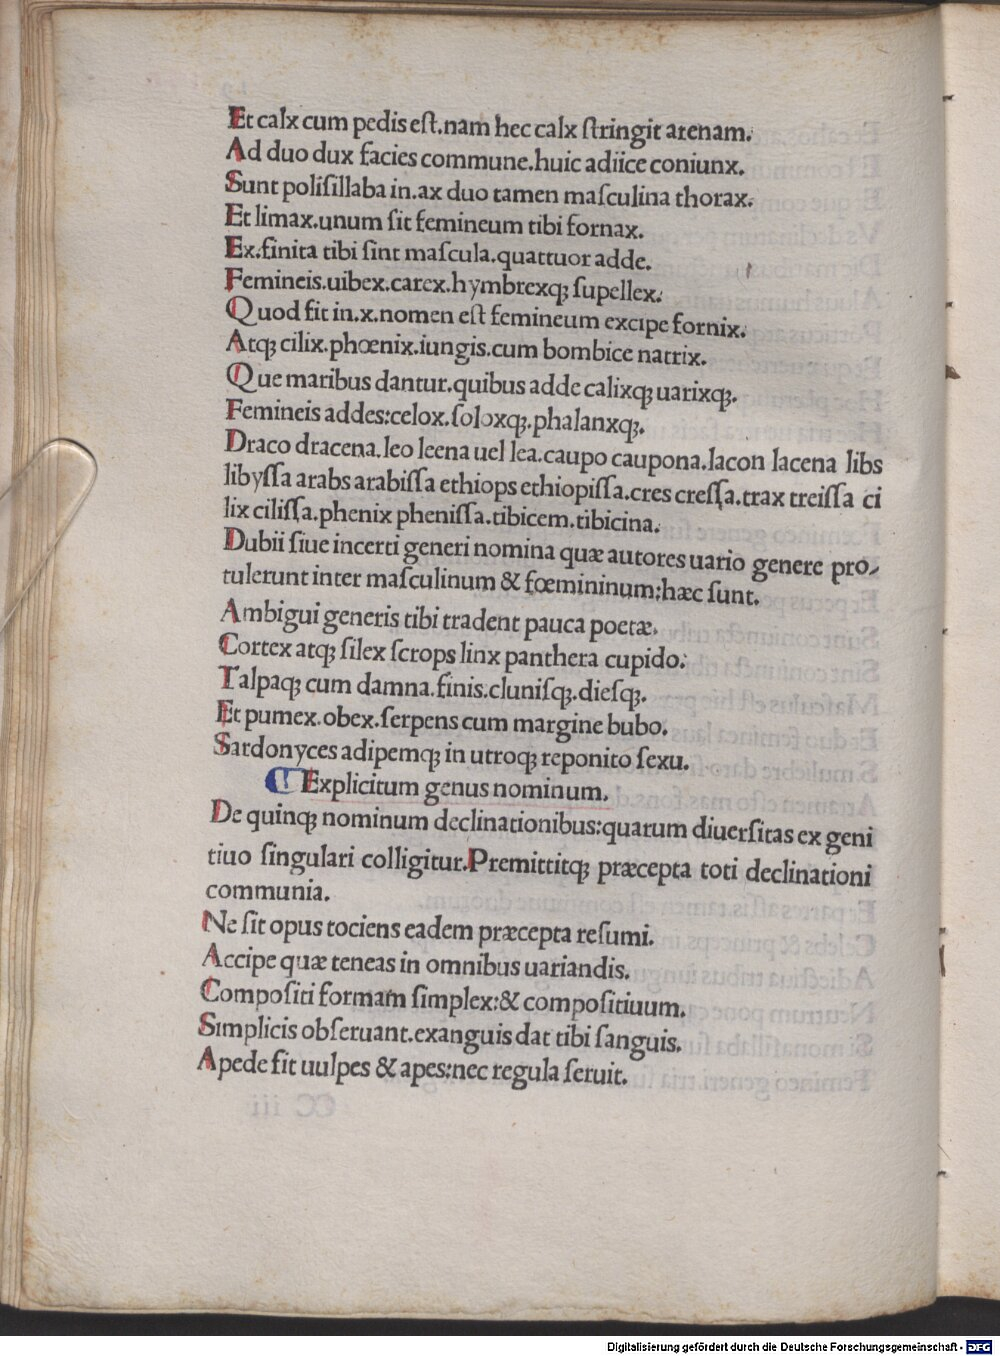 Et calx cum pedis eſt.nam hec calx ſtringit arenam.
Ad duo dux facies commune.huic adiice coniunx.
Sunt poliſillaba in.ax duo tamen maſculina thorax.
Et limax.unum ſit femineum tibi fornax.
Ex.finita tibi ſint maſcula.quattuor adde.
Femineis.uibex.carex.hymbrexqꝫ ſupellex.
Quod fit in.x.nomen eſt femineum excipe fornix.
Atqꝫ cilix.phœnix.iungis.cum bombice natrix.
Que maribus dantur.quibus adde calixqꝫ uarixqꝫ.
Femineis addes:celox.ſoloxqꝫ.phalanxqꝫ.
Draco dracena.leo leena uel lea.caupo caupona.lacon lacena libs
libyſſa arabs arabiſſa ethiops ethiopiſſa.cres creſſa.trax treiſſa ci
lix ciliſſa.phenix pheniſſa.tibicem.tibicina.
Dubii ſiue incerti generi nomina quæ autores uario genere pro⸗
tulerunt inter maſculinum & fœmininum:hæc ſunt.
Ambigui generis tibi tradent pauca poetæ.
Cortex atqꝫ ſilex ſcrops linx panthera cupido.
Talpaqꝫ cum damna.finis.cluniſqꝫ.dieſqꝫ.
Et pumex.obex.ſerpens cum margine bubo.
Sardonyces adipemqꝫ in utroqꝫ reponito ſexu.
Explicitum genus nominum.
De quinqꝫ nominum declinationibus:quarum diuerſitas ex geni
tiuo ſingulari colligitur.Premittitqꝫ præcepta toti declinationi
communia.
Ne ſit opus tociens eadem præcepta reſumi.
Accipe quæ teneas in omnibus uariandis.
Compoſiti formam ſimplex:& compoſitiuum.
Simplicis obſeruant.exanguis dat tibi ſanguis.
Apede fit uulpes & apes:nec regula ſeruit.
Digitalisierung gefördert durch die Deutsche Forschungsgemeinschaft - DFG